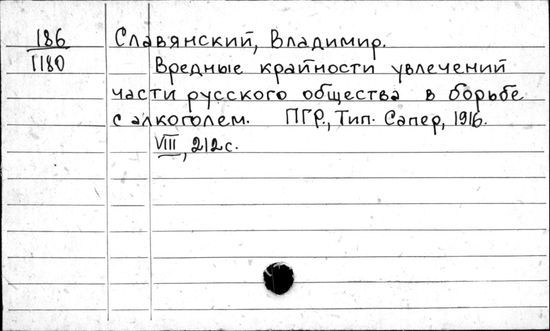 186 Славянский, Владимир.
1180 Вредные крайности увлечений
части русского общества в борьбе
с алкоголем. ПГР., Тип. Сапер, 1916.
VIII, 212 с.